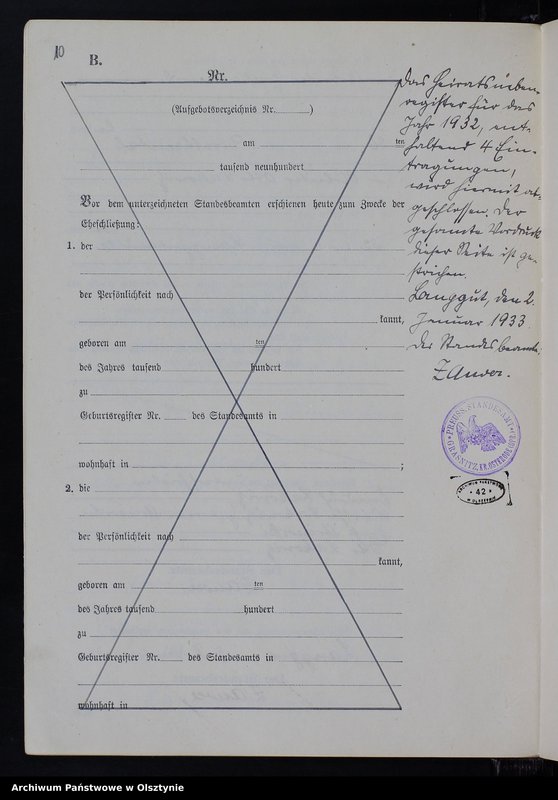 10
B.
Nr.
(Aufgebotsverzeichnis Nr. )
am ten
tausend neunhundert
Vor dem unterzeichneten Standesbeamten erschienen heute zum Zwecke der
Eheschließung:
1. der
der Persönlichkeit nach
kannt,
geboren am ten
des Jahres tausend hundert
zu
Geburtsregister Nr. des Standesamts in
wohnhaft in ;
2. die
der Persönlichkeit nach
kannt,
geboren am ten
des Jahres tausend hundert
zu
Geburtsregister Nr. des Standesamts in
wohnhaft in
Das Heiratsneben-
register für das
Jahr 1932, ent-
haltend 4 Ein-
tragungen,
wird hiermit ab-
geschlossen. Der
gesamte Vordruck
dieser Seite ist ge-
strichen.
Langgut, den 2.
Januar 1933.
Der Standesbeamte.
PREUSS. STANDESAMT
GRASNITZ, KR. OSTERODE
ARCHIWUM PAŃSTWOWE
42
W OLSZTYNIE
Archiwum Państwowe w Olsztynie